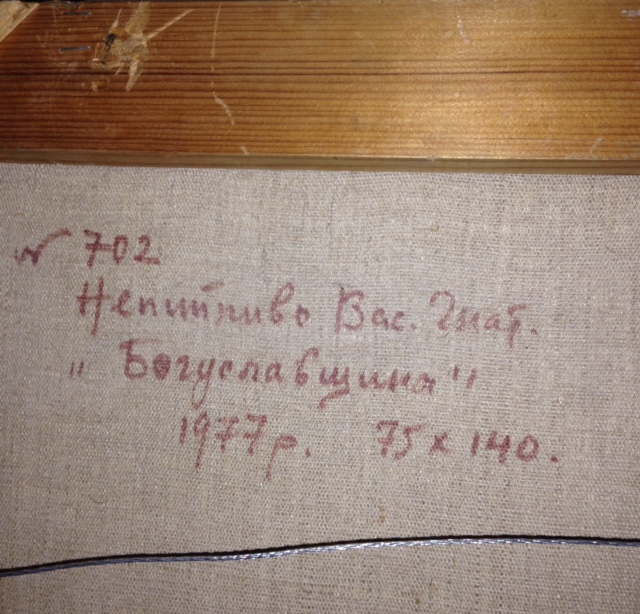 № 702
Непийпиво Вас. Гнат.
„ Богуславщина"
1977 р. 75 x 140.